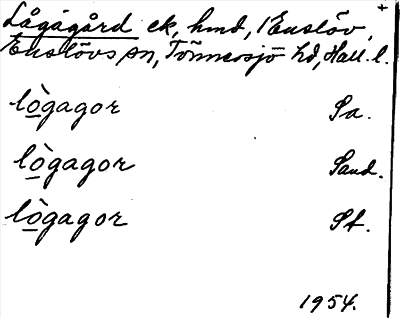 Lågagård ek, hmd, 1 Enslöv,
Enslövs sn, Tönnersjö hd, Hall. l.
lo̲̊̀gagor Sa.
lo̲̊̀gagor Sand.
lo̲̊̀gagor St.
1954.